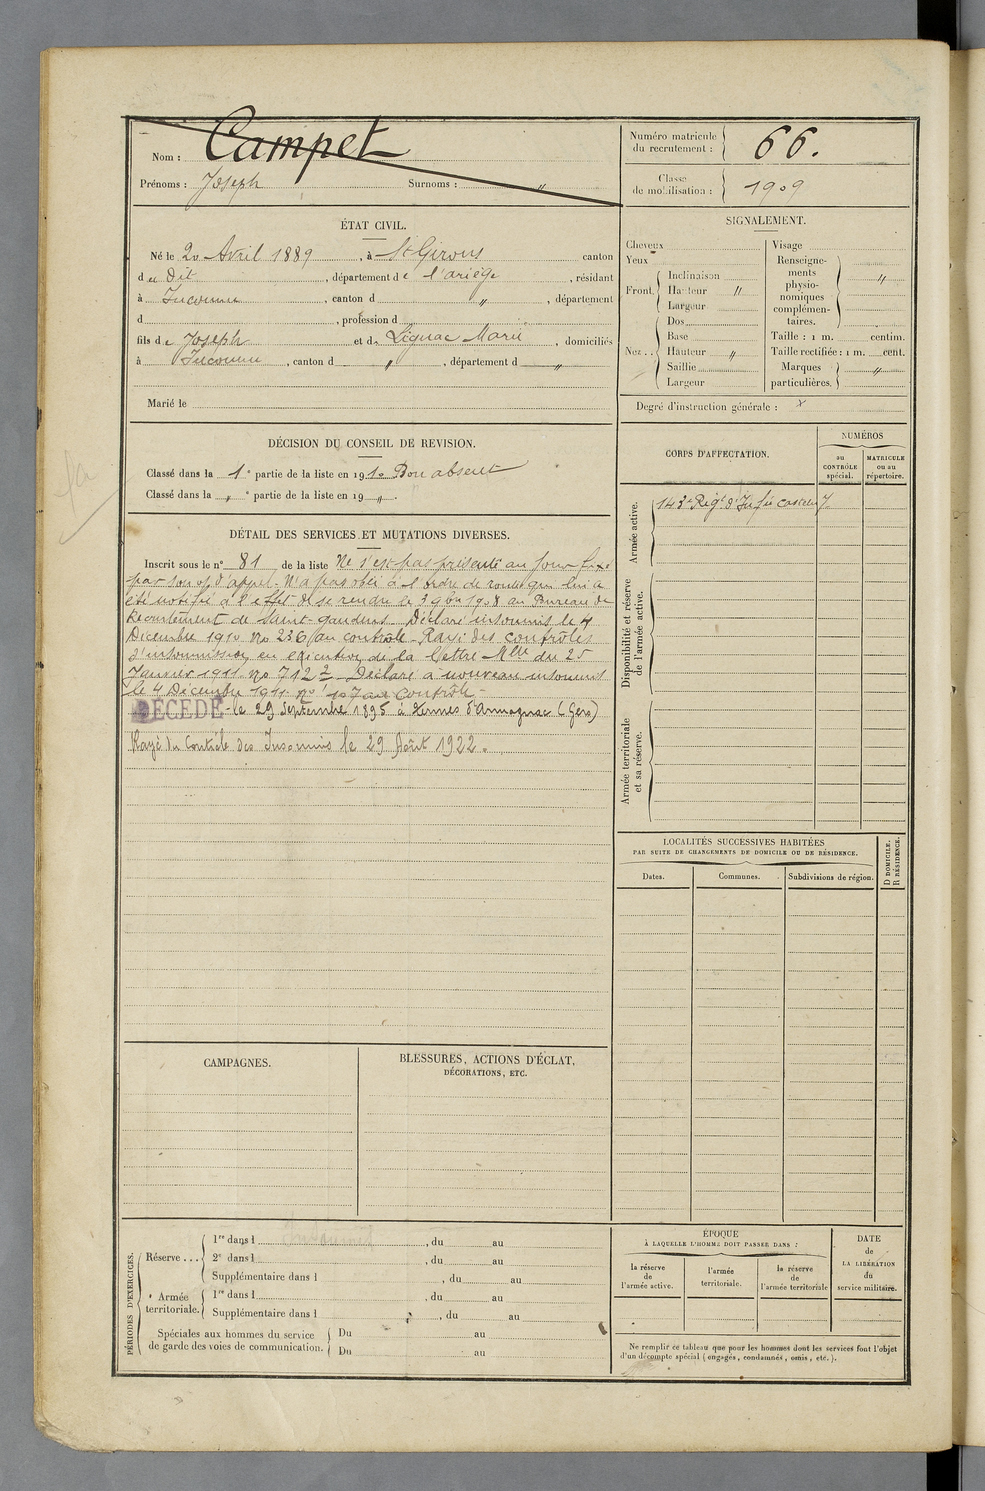 Nom : Campet
Prénoms : Joseph Surnoms : "
Numéro matricule du recrutement : 66.
Classe de mobilisation : 1909
ÉTAT CIVIL.
Né le 20 Avril 1889, à St Girons canton
d du Dit, département de l'ariège, résidant
à Inconnu, canton d ", département
d , profession d
fils de Joseph et de Lignac Marie, domiciliés
à Inconnu, canton d ", département d "
Marié le
SIGNALEMENT.
Cheveux
Yeux
Front.
Inclinaison
Hauteur "
Largeur
Nez . .
Dos
Base
Hauteur "
Saillie
Largeur
Visage
Renseigne-
ments
physio-
nomiques
complémen-
taires. "
Taille : 1 m. centim.
Taille rectifiée : 1 m. cent.
Marques
particulières. "
Degré d'instruction générale : x
DÉCISION DU CONSEIL DE REVISION.
Classé dans la 1e partie de la liste en 1910 Bon absent
Classé dans la " e partie de la liste en 19 " .
DÉTAIL DES SERVICES ET MUTATIONS DIVERSES.
Inscrit sous le n° 81 de la liste Ne s'est pas présenté au jour fixé
par son of d'appel - N'a pas obéi à l'ordre de route qui lui a
été notifié à l'effet de se rendre le 3 9bre 1908 au Bureau de
Recrutement de Saint-Gaudens Déclaré insoumis le 4
Décembre 1910 No 236 au contrôle - Rayé des contrôles
d'insoumission en exécution de la lettre Mlle du 25
Janvier 1911 No 712 2 - Déclaré à nouveau insoumis
le 4 Décembre 1911 No 107 au contrôle -
DÉCÉDÉ - le 29 Septembre 1895 à Termes d'Armagnac (Gers)
Rayé du Contrôle des Insoumis le 29 Août 1922.
CORPS D'AFFECTATION.
NUMÉROS
au
CONTRÔLE
spécial.
MATRICULE
ou au
répertoire.
Armée active.
143e Régt d'Infie 7
Disponibilité et réserve
de l'armée active.
Armée territoriale
et sa réserve.
LOCALITÉS SUCCESSIVES HABITÉES
PAR SUITE DE CHANGEMENTS DE DOMICILE OU DE RÉSIDENCE.
Dates.
Communes.
Subdivisions de région.
D DOMICILE.
R RÉSIDENCE.
CAMPAGNES.
BLESSURES, ACTIONS D'ÉCLAT,
DÉCORATIONS, ETC.
PÉRIODES D'EXERCICES.
Réserve . . .
1re dans l , du au
2e dans l , du au
Supplémentaire dans l , du au
Armée
territoriale.
1re dans l , du au
Supplémentaire dans l , du au
Spéciales aux hommes du service
de garde des voies de communication.
Du au
Du au
ÉPOQUE
À LAQUELLE L'HOMME DOIT PASSER DANS :
la réserve
de
l'armée active.
l'armée
territoriale.
la réserve
de
l'armée territoriale
DATE
de
LA LIBÉRATION
du
service militaire.
Ne remplir ce tableau que pour les hommes dont les services font l'objet
d'un décompte spécial (engagés, condamnés, omis, etc.).